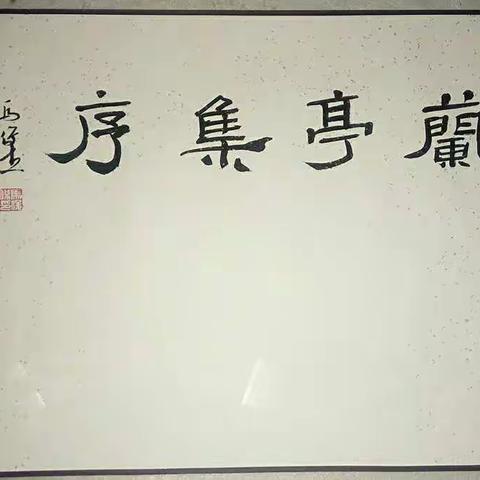 蘭亭集序